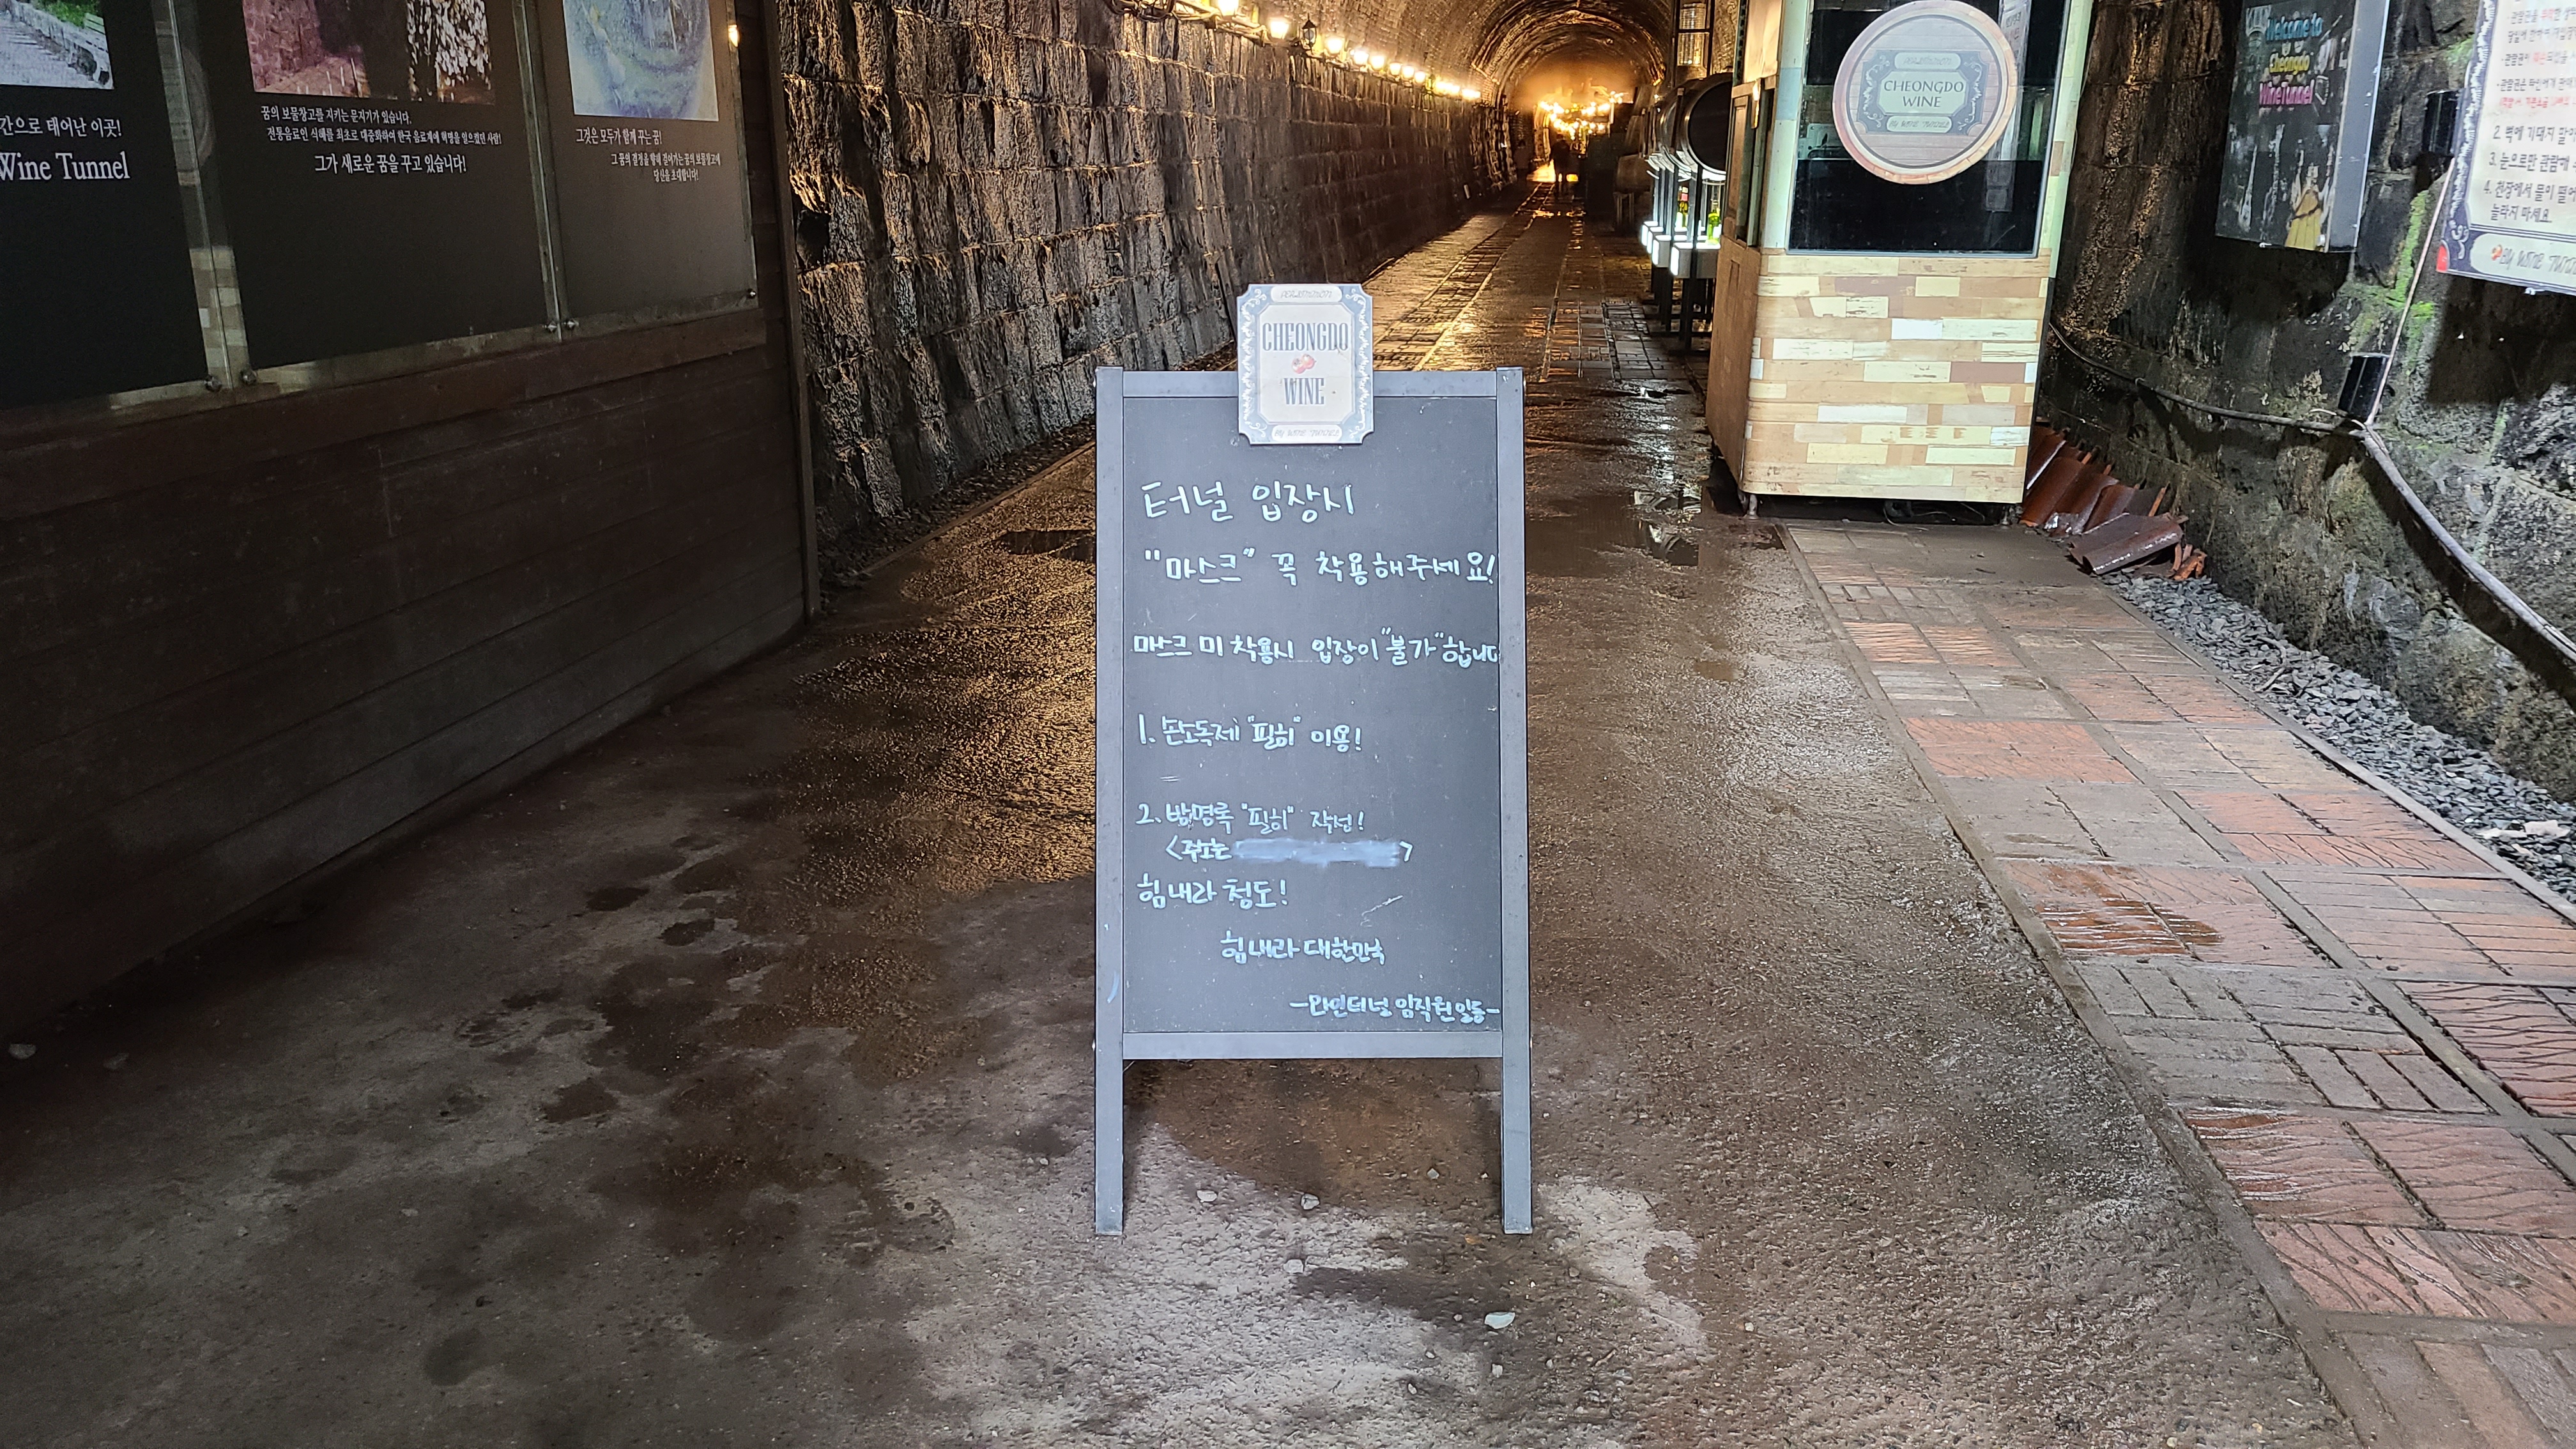 간으로 태어난 이곳!
Wine Tunnel
꿈의 보물창고를 지키는 문지기가 있습니다.
전통음료인 식혜를 최초로 대중화하여 한국 음료계에 혁명을 일으켰던 사람!
그가 새로운 꿈을 꾸고 있습니다!
그것은 모두가 함께 꾸는 꿈!
그 꿈의 결정을 향해 걸어가는 꿈의 보물창고에
당신을 초대합니다!
CHEONGDO
WINE
BY WINE TUNNEL
터널 입장시
"마스크" 꼭 착용해주세요!
마스크 미 착용시 입장이 "불가" 합니다
1. 손소독제 "필히" 이용!
2. 방명록 "필히" 작성!
<주소는 >
힘내라 청도!
힘내라 대한민국
-와인터널 임직원일동-
CHEONGDO
WINE
BY WINE TUNNEL
Welcome to
Cheongdo
Wine Tunnel
2. 벽에 기대지 말
3. 눈으로만 관람해
4. 천장에서 물이 떨어
놀라지 마세요
BY WINE TUN